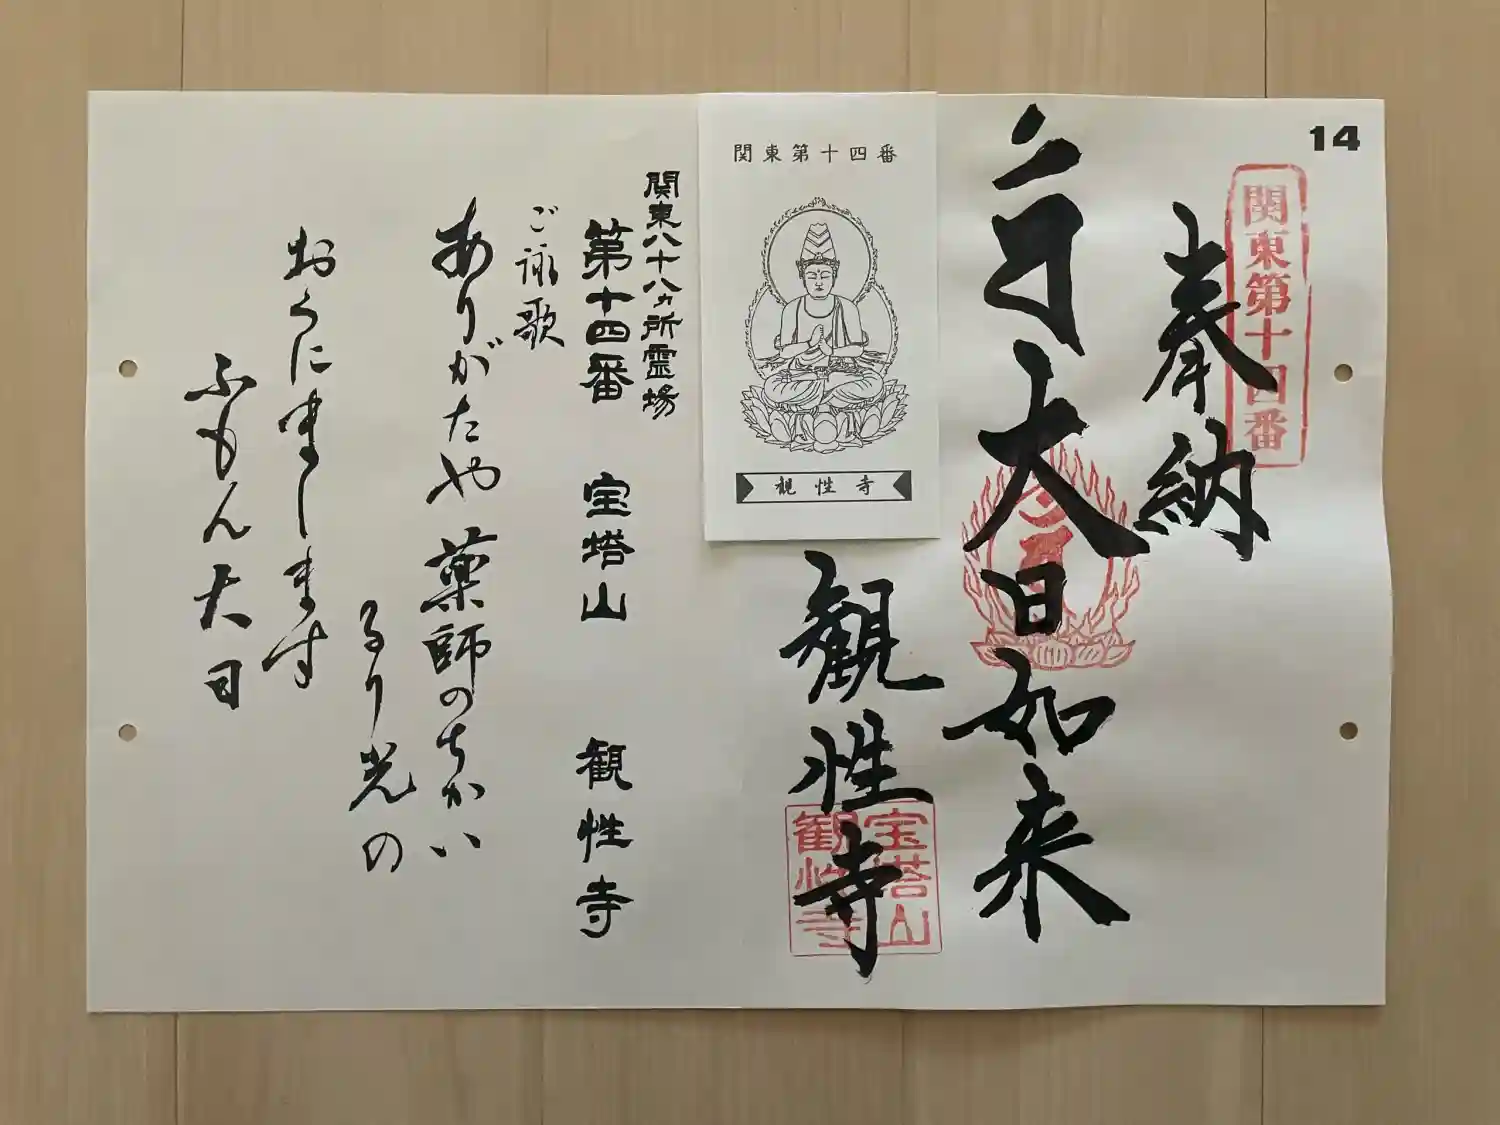 14
関東第十四番
奉納
大日如来
観性寺
宝塔山
観性寺
関東第十四番
観性寺
関東八十八ヵ所霊場
第十四番 宝塔山 観性寺
ご詠歌
ありがたや薬師のちかい
るり光の
おくにまします
ふもん大日